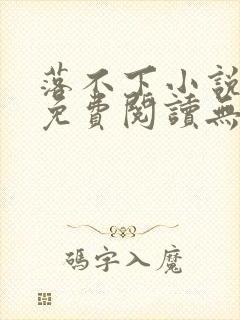 落不下小說
免費閱讀無
碼字入魔